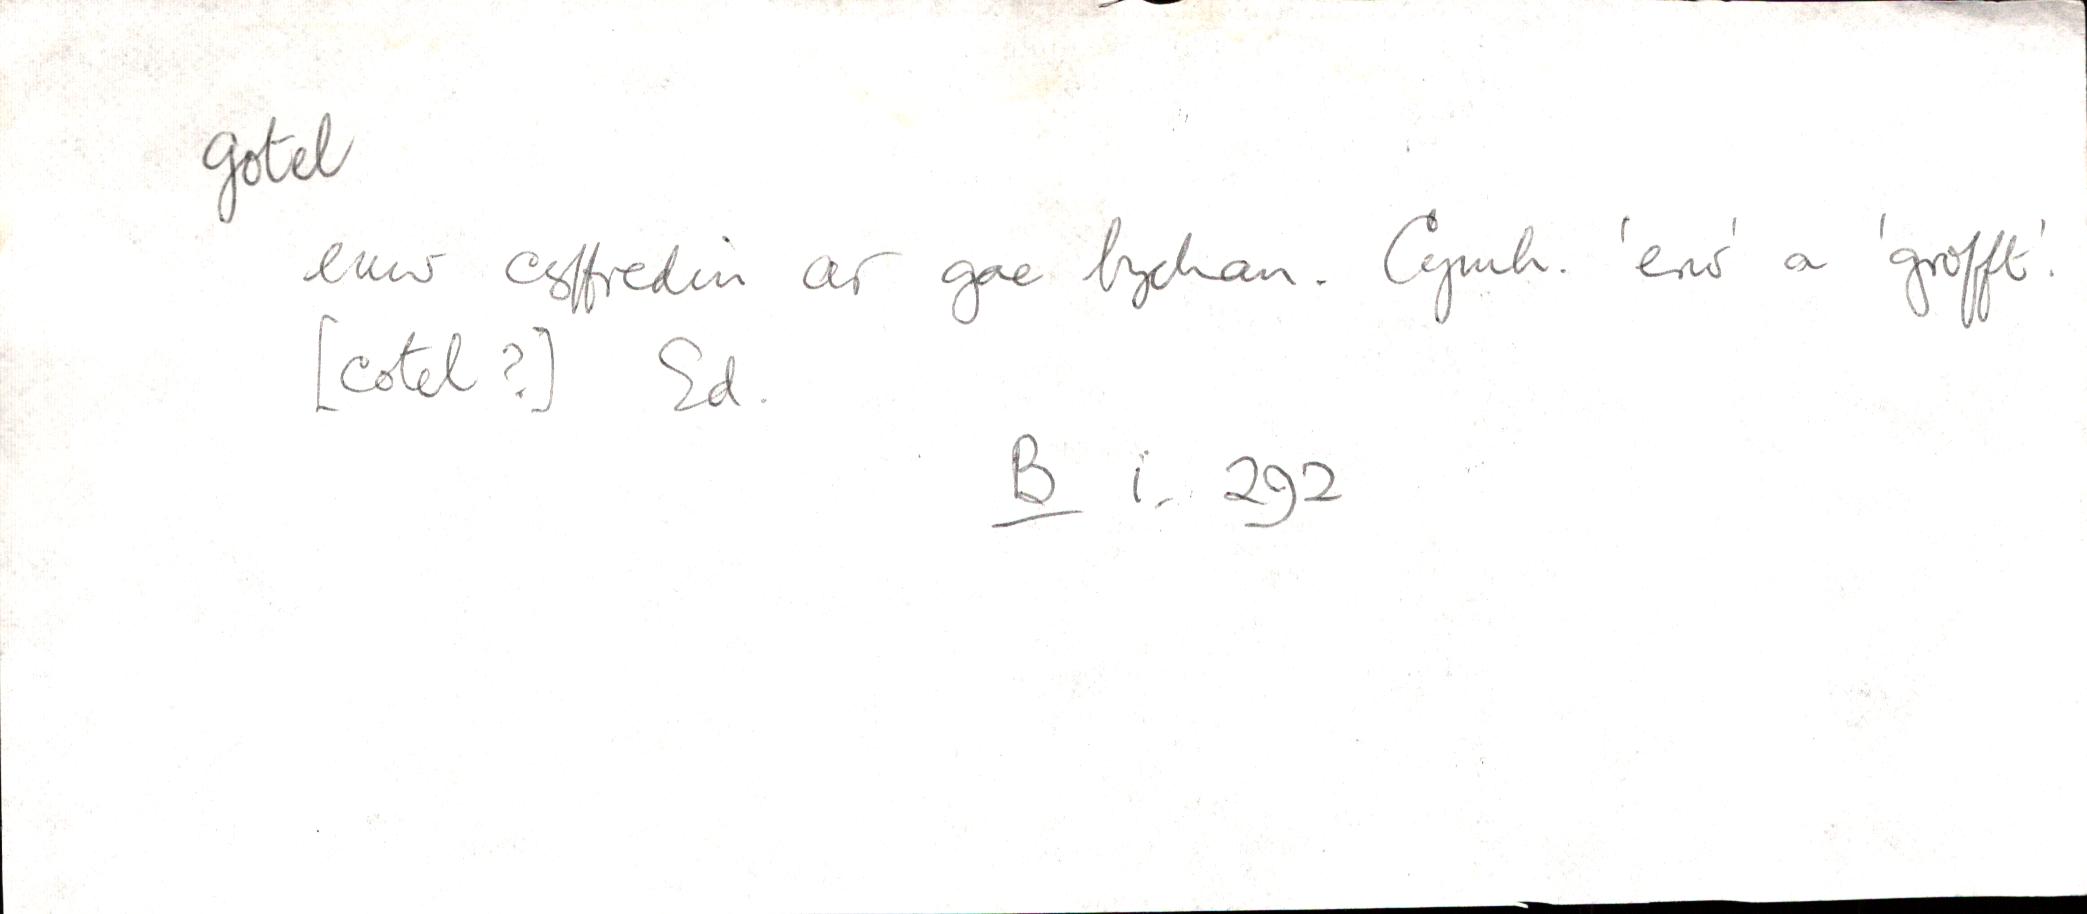 gotel
enw cyffredin ar gae bychan. Cymh. 'erw' a 'grofft'.
[cotel ?] Ed.
B i. 292